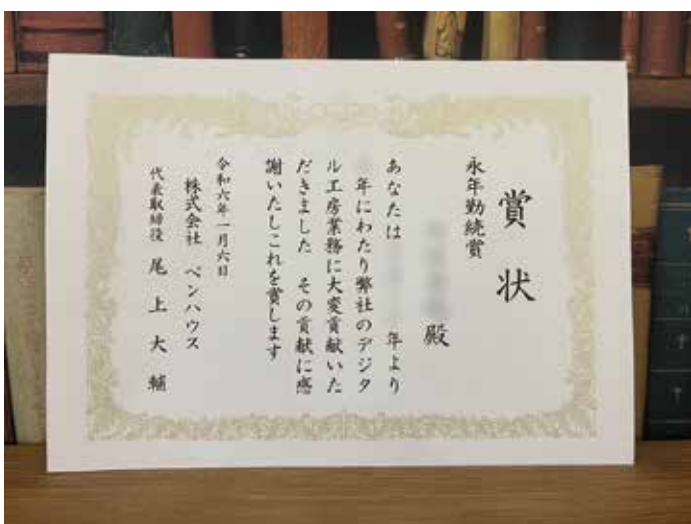 賞状
永年勤続賞
殿
あなたは 年より
年にわたり弊社のデジタ
ル工房業務に大変貢献いた
だきました その貢献に感
謝いたしこれを賞します
令和六年一月六日
株式会社 ペンハウス
代表取締役 尾上大輔